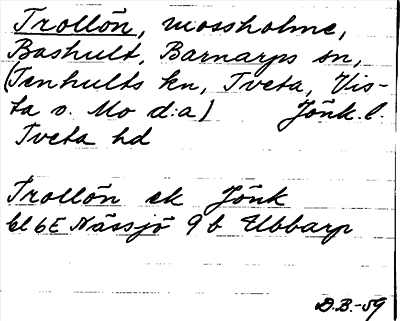 Trollön, mossholme,
Bashult, Barnarps sn,
(Tenhults kn, Tveta, Vis-
ta o. Mo d:a) Jönk. l.
Tveta hd
Trollön ek Jönk
bl 6E Nässjö 9b Ubbarp
D.B.-59